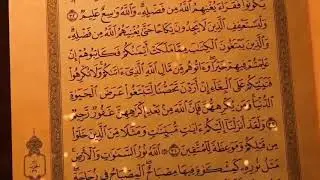 يَكُونُوا۟ فُقَرَآءَ يُغْنِهِمُ ٱللَّهُ مِن فَضْلِهِۦ ۗ وَٱللَّهُ وَٰسِعٌ عَلِيمٌ ٣٢
وَلْيَسْتَعْفِفِ ٱلَّذِينَ لَا يَجِدُونَ نِكَاحًا حَتَّىٰ يُغْنِيَهُمُ ٱللَّهُ مِن فَضْلِهِۦ ۗ
وَٱلَّذِينَ يَبْتَغُونَ ٱلْكِتَٰبَ مِمَّا مَلَكَتْ أَيْمَٰنُكُمْ فَكَاتِبُوهُمْ إِنْ
عَلِمْتُمْ فِيهِمْ خَيْرًا ۖ وَءَاتُوهُم مِّن مَّالِ ٱللَّهِ ٱلَّذِىٓ ءَاتَىٰكُمْ ۚ وَلَا تُكْرِهُوا۟
فَتَيَٰتِكُمْ عَلَى ٱلْبِغَآءِ إِنْ أَرَدْنَ تَحَصُّنًا لِّتَبْتَغُوا۟ عَرَضَ ٱلْحَيَوٰةِ
ٱلدُّنْيَا ۚ وَمَن يُكْرِههُّنَّ فَإِنَّ ٱللَّهَ مِنۢ بَعْدِ إِكْرَٰهِهِنَّ غَفُورٌ رَّحِيمٌ ٣٣
وَلَقَدْ أَنزَلْنَآ إِلَيْكُمْ ءَايَٰتٍ مُّبَيِّنَٰتٍ وَمَثَلًا مِّنَ ٱلَّذِينَ خَلَوْا۟
مِن قَبْلِكُمْ وَمَوْعِظَةً لِّلْمُتَّقِينَ ٣٤ ٱللَّهُ نُورُ ٱلسَّمَٰوَٰتِ وَٱلْأَرْضِ ۚ
مَثَلُ نُورِهِۦ كَمِشْكَوٰةٍ فِيهَا مِصْبَاحٌ ۖ ٱلْمِصْبَاحُ فِى زُجَاجَةٍ ۖ